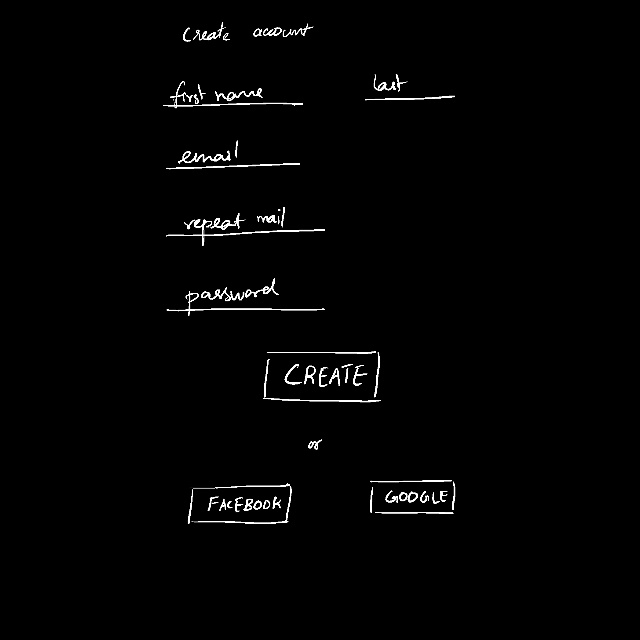 Create account
first name last
email
repeat mail
password
CREATE
or
FACEBOOK GOOGLE